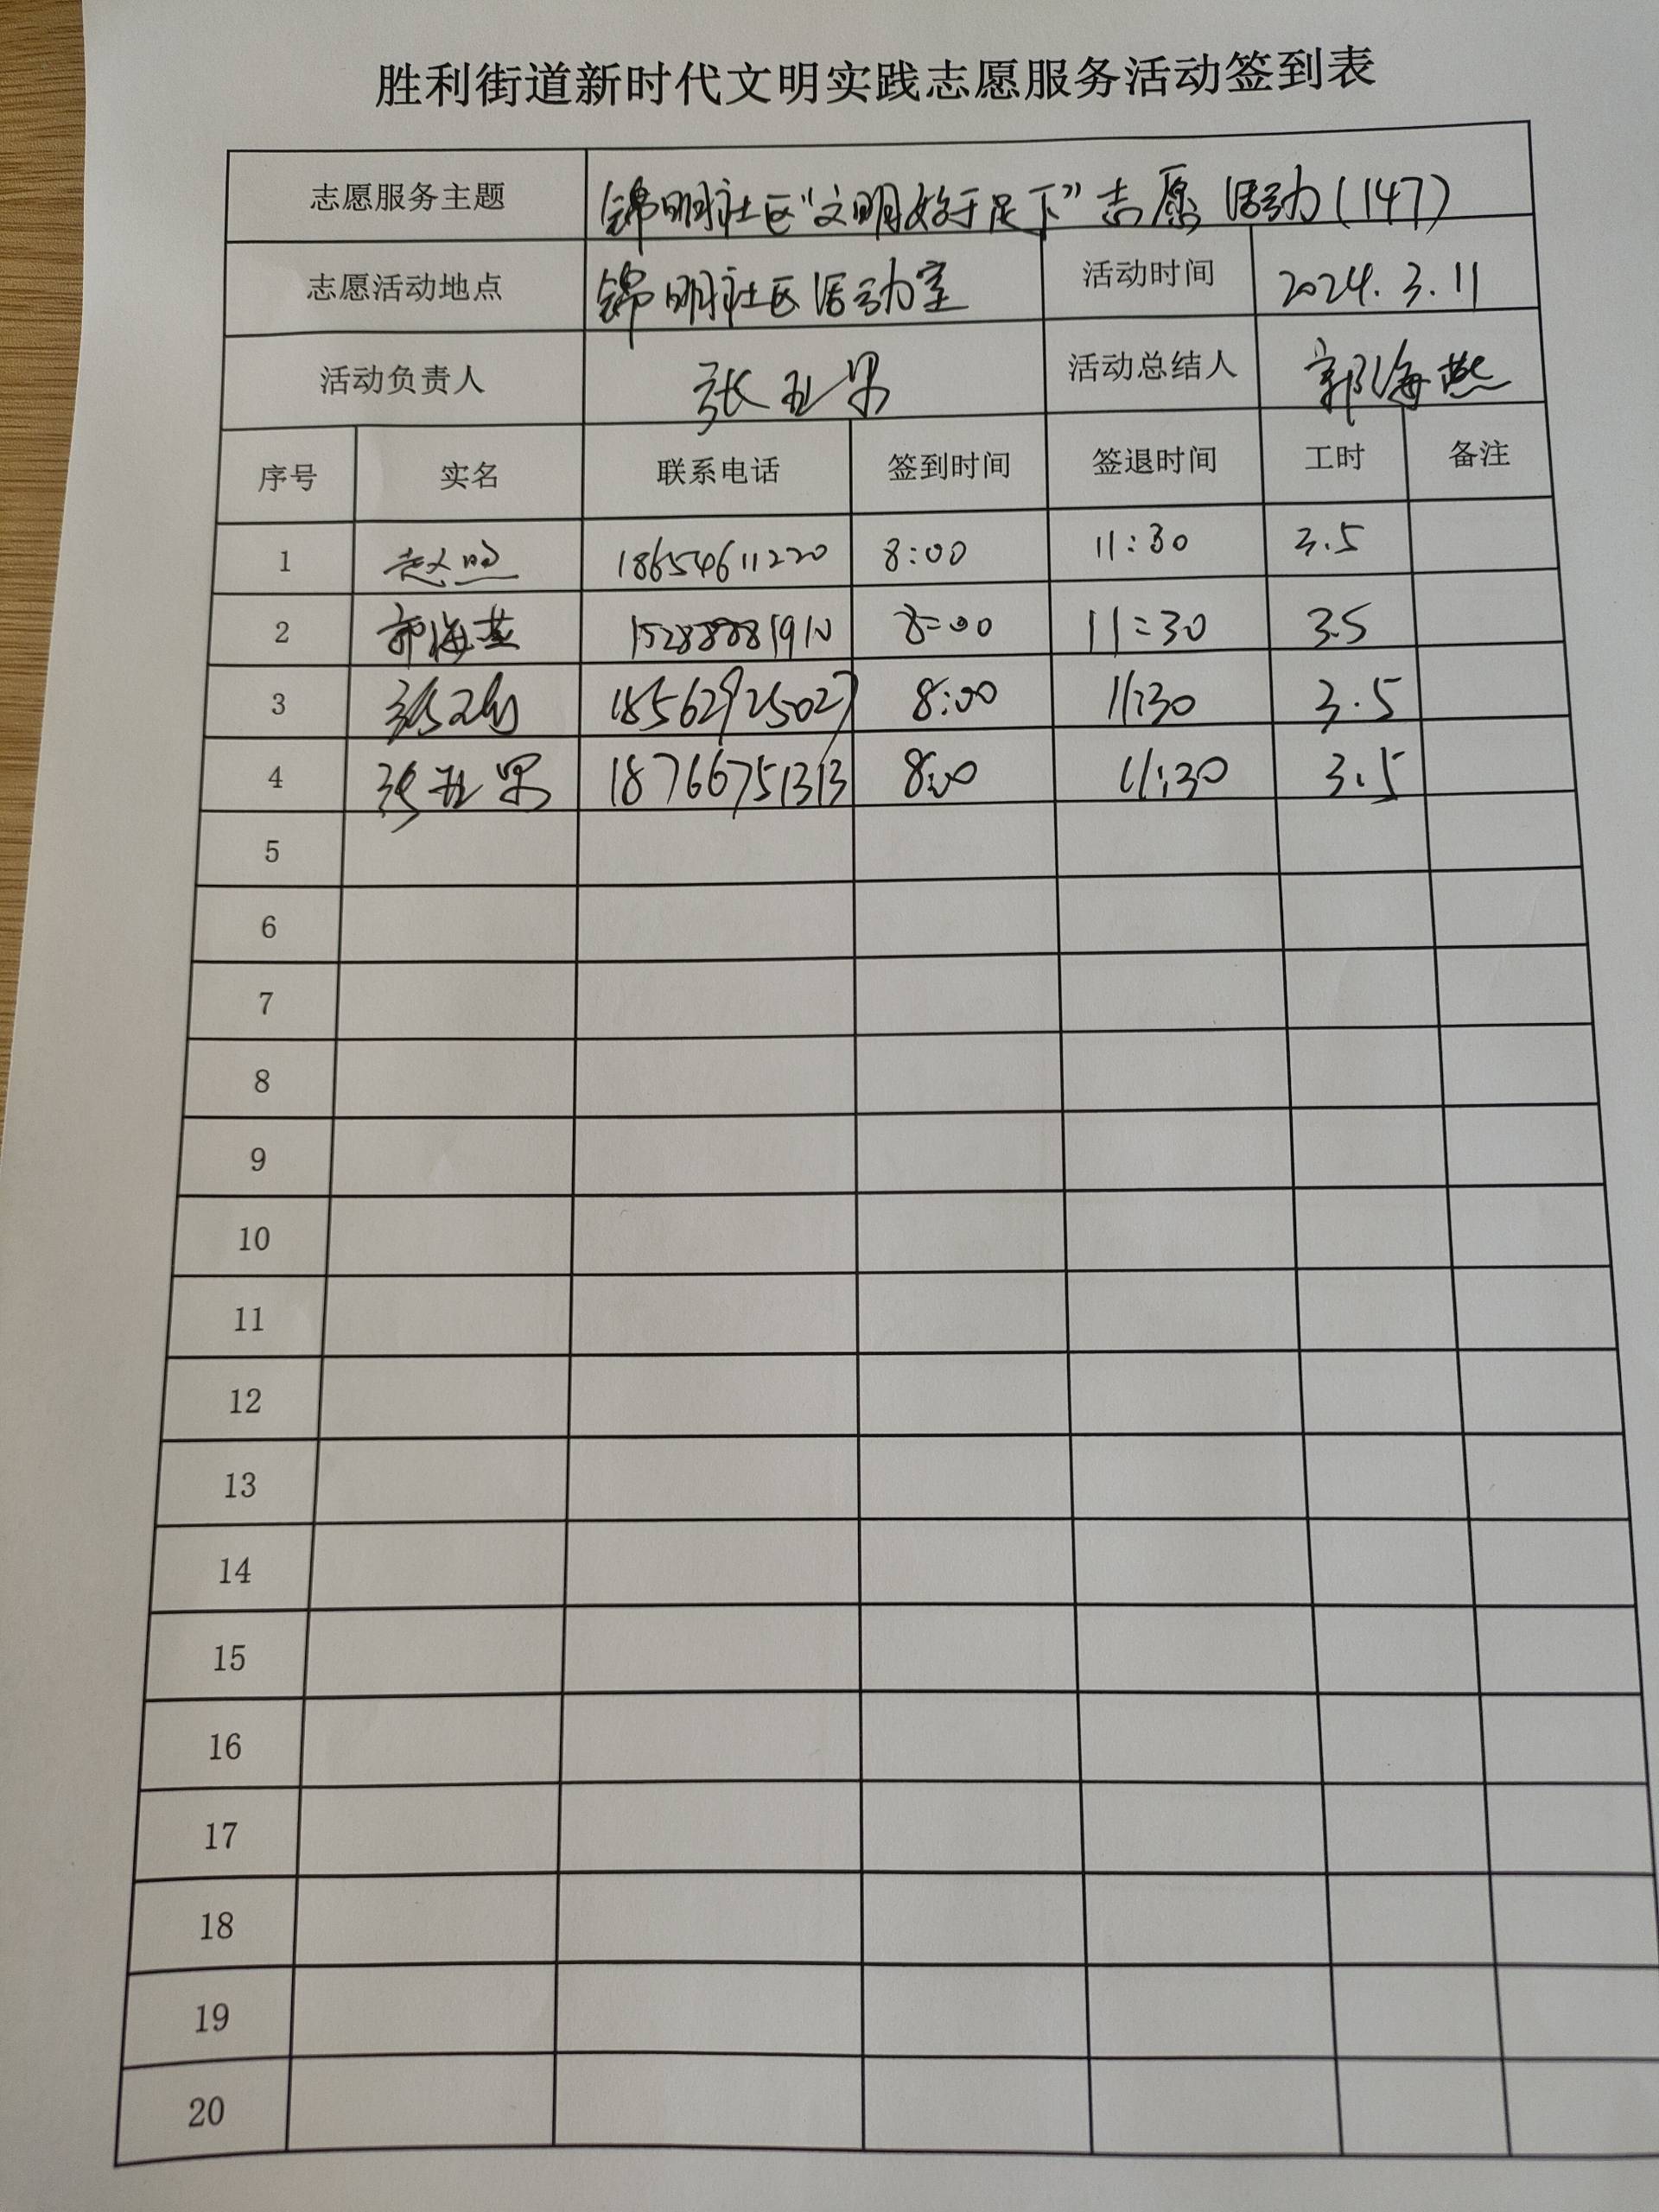 胜利街道新时代文明实践志愿服务活动签到表
志愿服务主题 锦明社区“文明始于足下”志愿活动(147)
志愿活动地点 锦明社区活动室 活动时间 2024.3.11
活动负责人 张 活动总结人 郭海燕
序号 实名 联系电话 签到时间 签退时间 工时 备注
1 赵 18654611220 8:00 11:30 3.5
2 郭海燕 15288881910 8:00 11:30 3.5
3 张 18562925027 8:00 11:30 3.5
4 张 18766751313 8:00 11:30 3.5
5
6
7
8
9
10
11
12
13
14
15
16
17
18
19
20